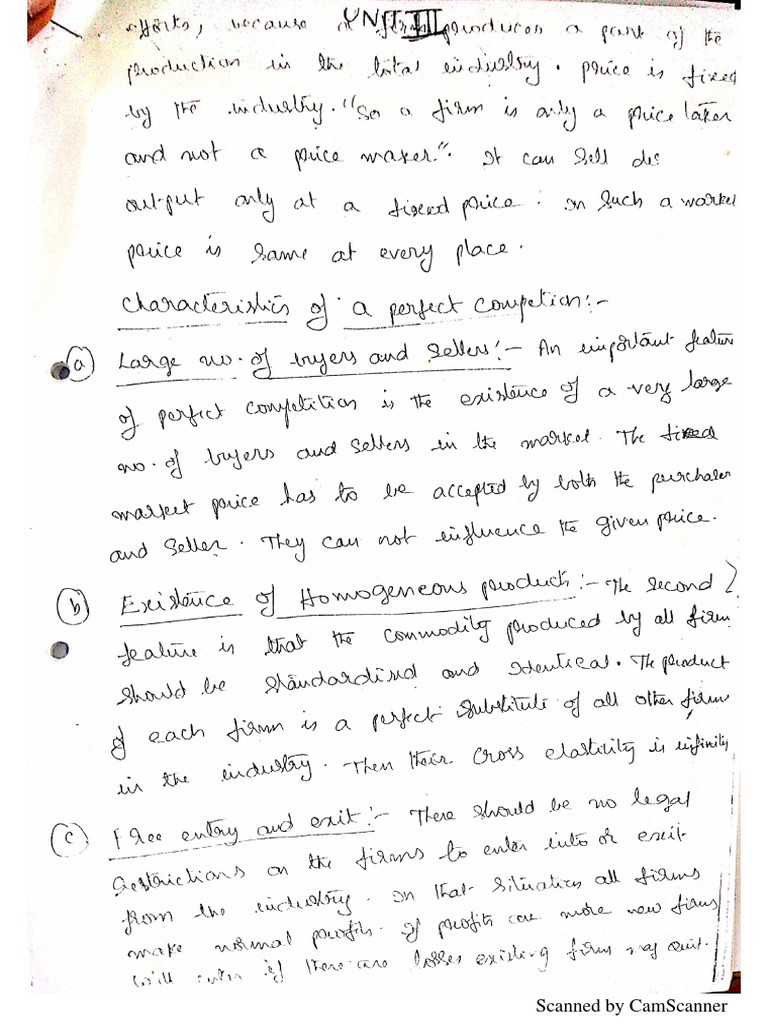 UNIT III
efforts, because a firm produces a part of the
production in the total industry. price is fixed
by the industry. "So a firm is only a price taker
and not a price maker". It can sell its
output only at a fixed price. In such a market
price is same at every place.
Characteristics of a perfect Competion:-
(a) Large no. of buyers and sellers:- An important feature
of perfect competition is the existence of a very large
no. of buyers and sellers in the market. The fixed
market price has to be accepted by both the purchaser
and seller. They can not influence the given price.
(b) Existence of Homogeneous product:- The second
feature is that the commodity produced by all firm
should be standardised and identical. The product
of each firm is a perfect substitute of all other firms
in the industry. Then their cross elastility is infinity
(c) Free entry and exit:- There should be no legal
restrictions on the firms to enter into or exit
from the industry. In that situation all firms
make normal profits. If profits are more new firms
will enter if there are losses existing firm may quit.
Scanned by CamScanner